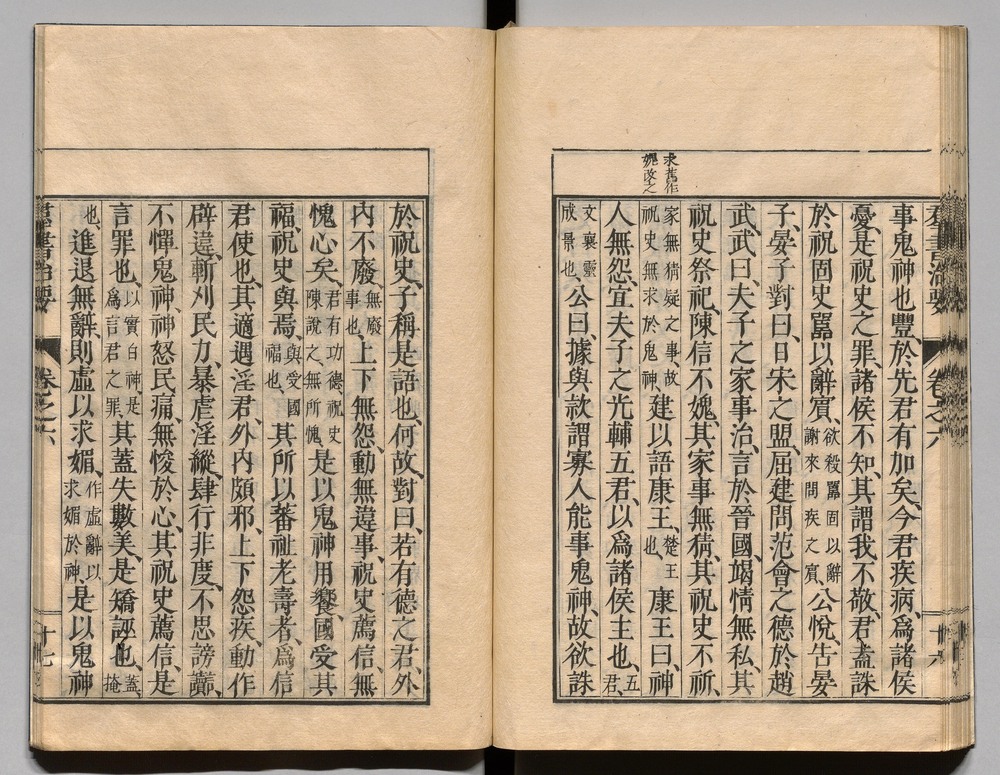 求舊作
媿改之
事鬼神也豐、於先君有加矣、今君疾病、爲諸侯
憂、是祝史之罪、諸侯不知、其謂我不敬、君盍誅
於祝固史嚚以辭賓、欲殺嚚固以辭謝來問疾之賓、公悅、告晏
子、晏子對曰、日宋之盟、屈建問范會之德於趙
武、武曰、夫子之家事治、言於晉國、竭情無私、其
祝史祭祀、陳信不媿、其家事無猜、其祝史不祈、
家無猜疑之事、故祝史無求於鬼神、建以語康王、楚王也、康王曰、神
人無怨、宜夫子之光輔五君、以爲諸侯主也、五君、
文襄靈成景也、公曰、據與款謂寡人能事鬼神、故欲誅
群書治要 卷之六 十六
於祝史、子稱是語也、何故、對曰、若有德之君、外
內不廢、無廢事也、上下無怨、動無違事、祝史薦信、無
愧心矣、君有功德、祝史陳說之、無所愧、是以鬼神用饗、國受其
福、祝史與焉、與受國福也、其所以蕃祉老壽者、爲信
君使也、其適遇淫君、外內頗邪、上下怨疾、動作
辟違、斬刈民力、暴虐淫縱、肆行非度、不思謗讟、
不憚鬼神、神怒民痛、無悛於心、其祝史薦信、是
言罪也、以實白神、是爲言君之罪、其蓋失數美、是矯誣也、蓋掩
也、進退無辭、則虛以求媚、作虛辭以求媚於神、是以鬼神
群書治要 卷之六 十七